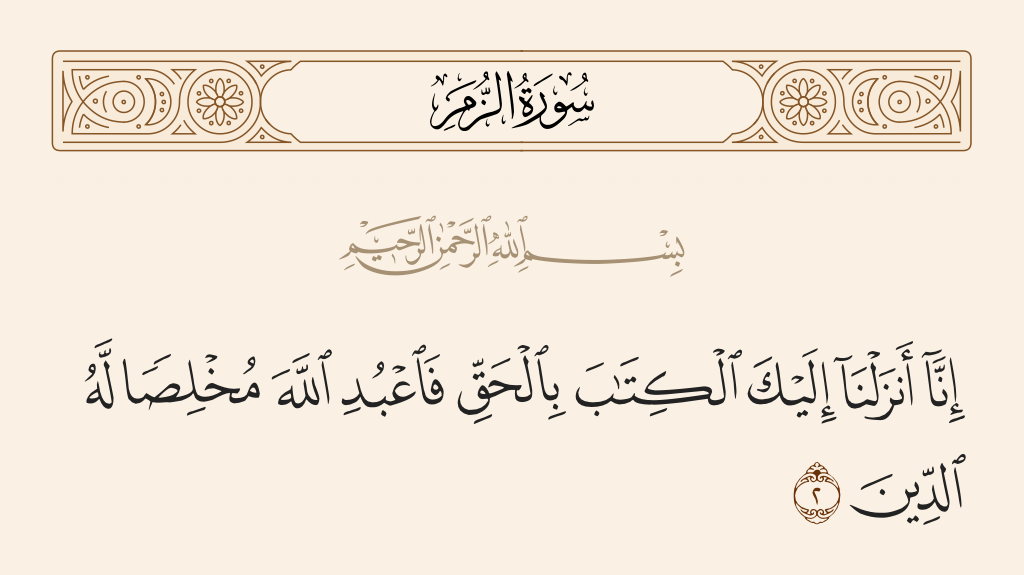 سُورَةُ الزُّمَرِ
بِسْمِ ٱللَّهِ ٱلرَّحْمَٰنِ ٱلرَّحِيمِ
إِنَّآ أَنزَلْنَآ إِلَيْكَ ٱلْكِتَٰبَ بِٱلْحَقِّ فَٱعْبُدِ ٱللَّهَ مُخْلِصًا لَّهُ
ٱلدِّينَ ٢